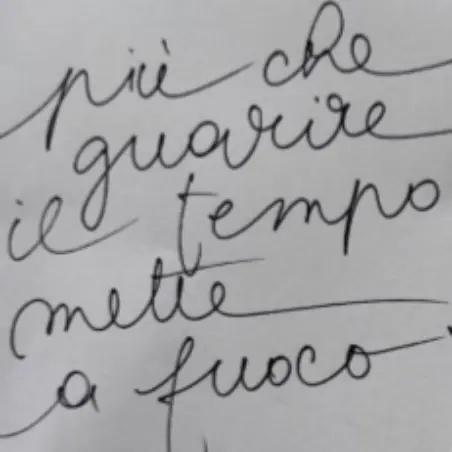 più che
guarire
il tempo
mette
a fuoco